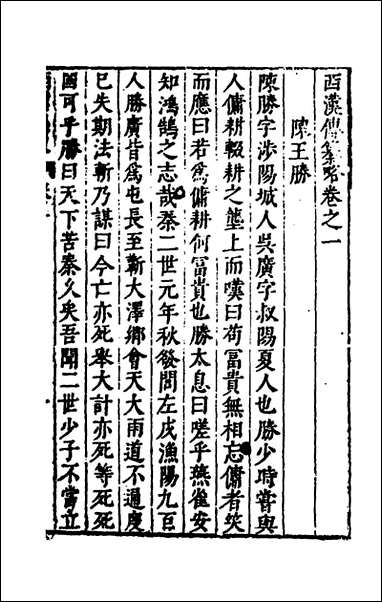 西漢傳纂略卷之一
陳王勝
陳勝字涉陽城人吳廣字叔陽夏人也勝少時嘗與
人傭耕輟耕之壟上而嘆曰苟冨貴無相忘傭者笑
而應曰若爲傭耕何冨貴也勝太息曰嗟乎燕雀安
知鴻鵠之志哉秦二世元年秋發閭左戍漁陽九百
人勝廣皆爲屯長至蘄大澤鄉會天大雨道不通度
已失期法斬乃謀曰今亡亦死舉大計亦死等死死
國可乎勝曰天下苦秦久矣吾聞二世少子不當立